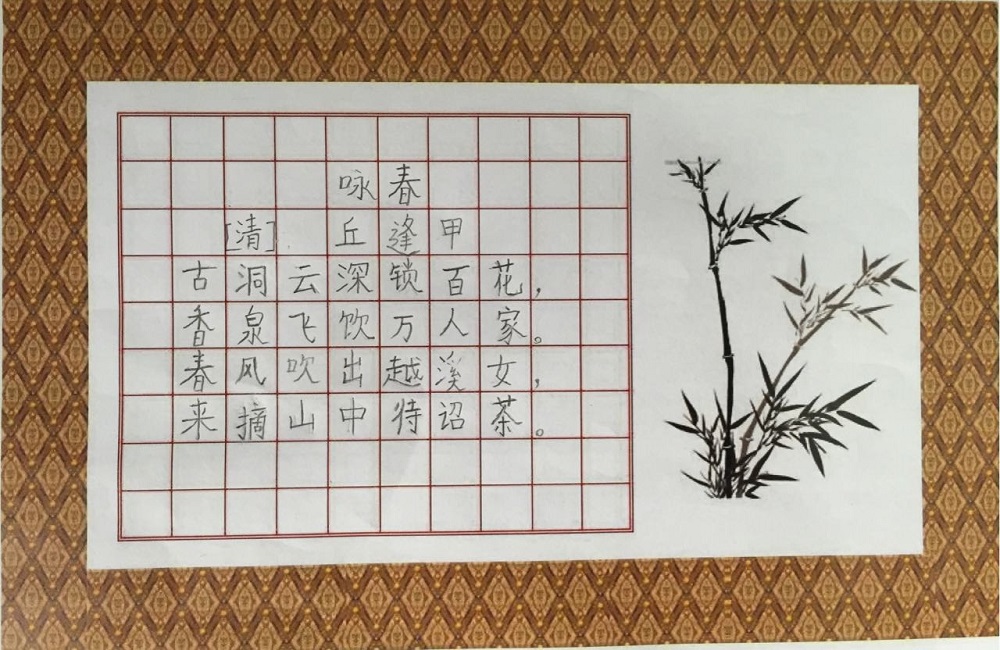 咏春
[清] 丘逢甲
古洞云深锁百花，
香泉飞饮万人家。
春风吹出越溪女，
来摘山中待诏茶。